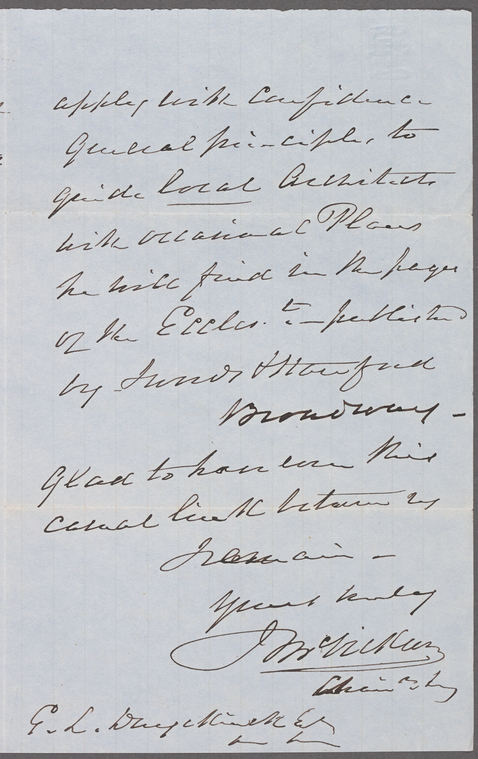 apply with confidence
General principles to
guide local Architects
with occasional Plans
he will find in the pages
of the Eccles.t - published
by & Stanford
Broadway -
Glad to have even this
casual link between us
I remain -
Yours truly
J McVickar
E. L. Duyckinck Esq